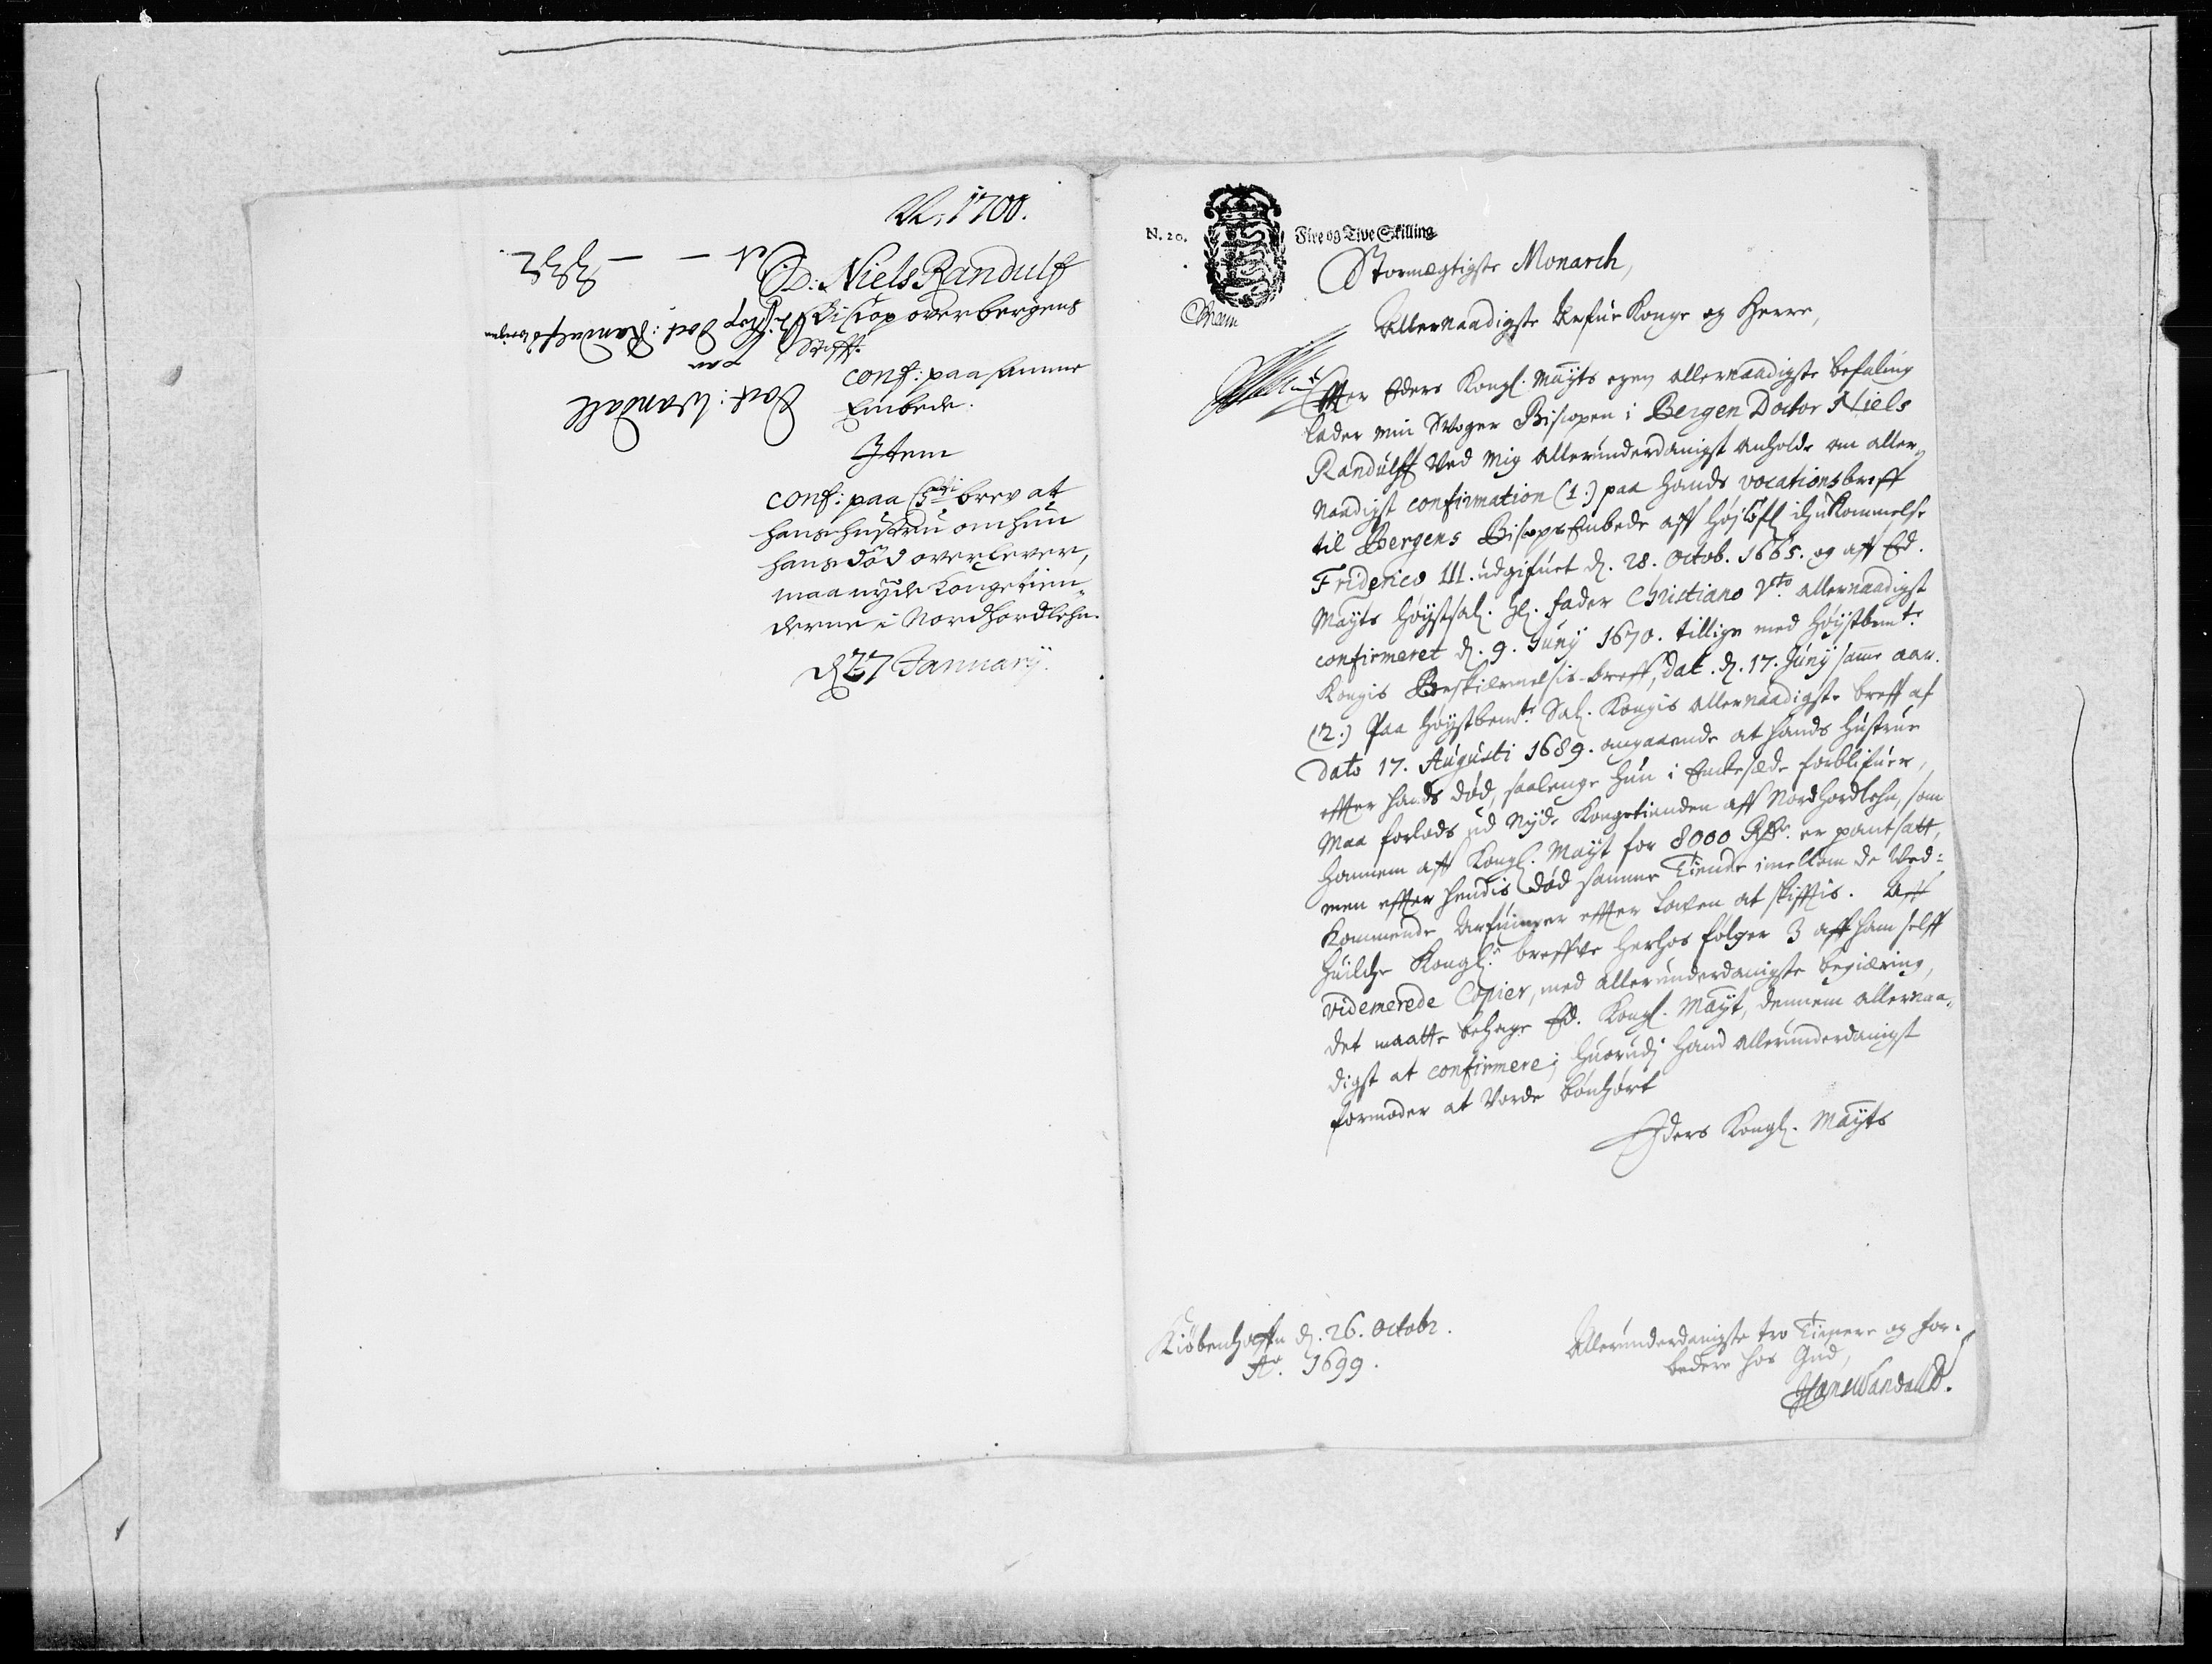 1700.
D: Niels Randulf
Biscop over bergens
Stifft.
conf: paa samme
Embede.
Item
conf: paa brev at
hans hustru om hun
hans död overlever,
maa nyde Kongetien-
derne i Nordhordlehn.
d 27 January.
Doct: Wandall
paa
Doct: Randulfs
N. 20. Fire og Tive Skilling
Stormegtigste Monarch,
Allernaadigste Arfue Konge og Herre,
Effter Eders Kongl. Mayts egen allernaadigste befaling
lader min Svoger Biscopen i Bergen Doctor Niels
Randulff ved mig allerunderdanigst anholde om aller-
naadigst confirmation (1.) paa hands vocationsbreff
til Bergens Biscops Embede aff Højlofl ihukommelse
Friderico III. udgifuet d. 28. Octob. 1665. og aff Ed.
Mayts Høystsal. Hl. fader Christiano Vto allernaadigst
confirmeret d. 9. Juny 1670. tillige med Høystbemte
Kongis Beskiermelsis-breff, dat. d. 17. Juny samme aar.
(2.) Paa Høystbemte Sal. Kongis allernaadigste breff af
Dato 17. Augusti 1689. angaaende at hands hustrue
effter hands død, saalenge hun i Enkesæde forblifuer,
maa forlods ud nyde Kongetienden aff Nordhordlehn, som
hannem aff Kongl. Mayt for 8000 Rdr. er pantsatt,
men effter hendis død samme Tiende imellom de ved-
kommende Arfuinger effter loven at skifftis. Aff
huilche Kongl. breffve herhos følger 3 aff ham selff
videmerede Copier, med allerunderdanigste begiering,
det maatte behage Ed. Kongl. Mayt, dennem allernaa-
digst at confirmere; huorudj hand allerunderdanigst
formoder at vorde bønhørt
Eders Kongl. Mayts
Kiöbenhaffn d. 26. Octobr.
Ao. 1699.
Allerunderdanigste tro Tienere og for-
bedere hos Gud,
Hans Wandall D.